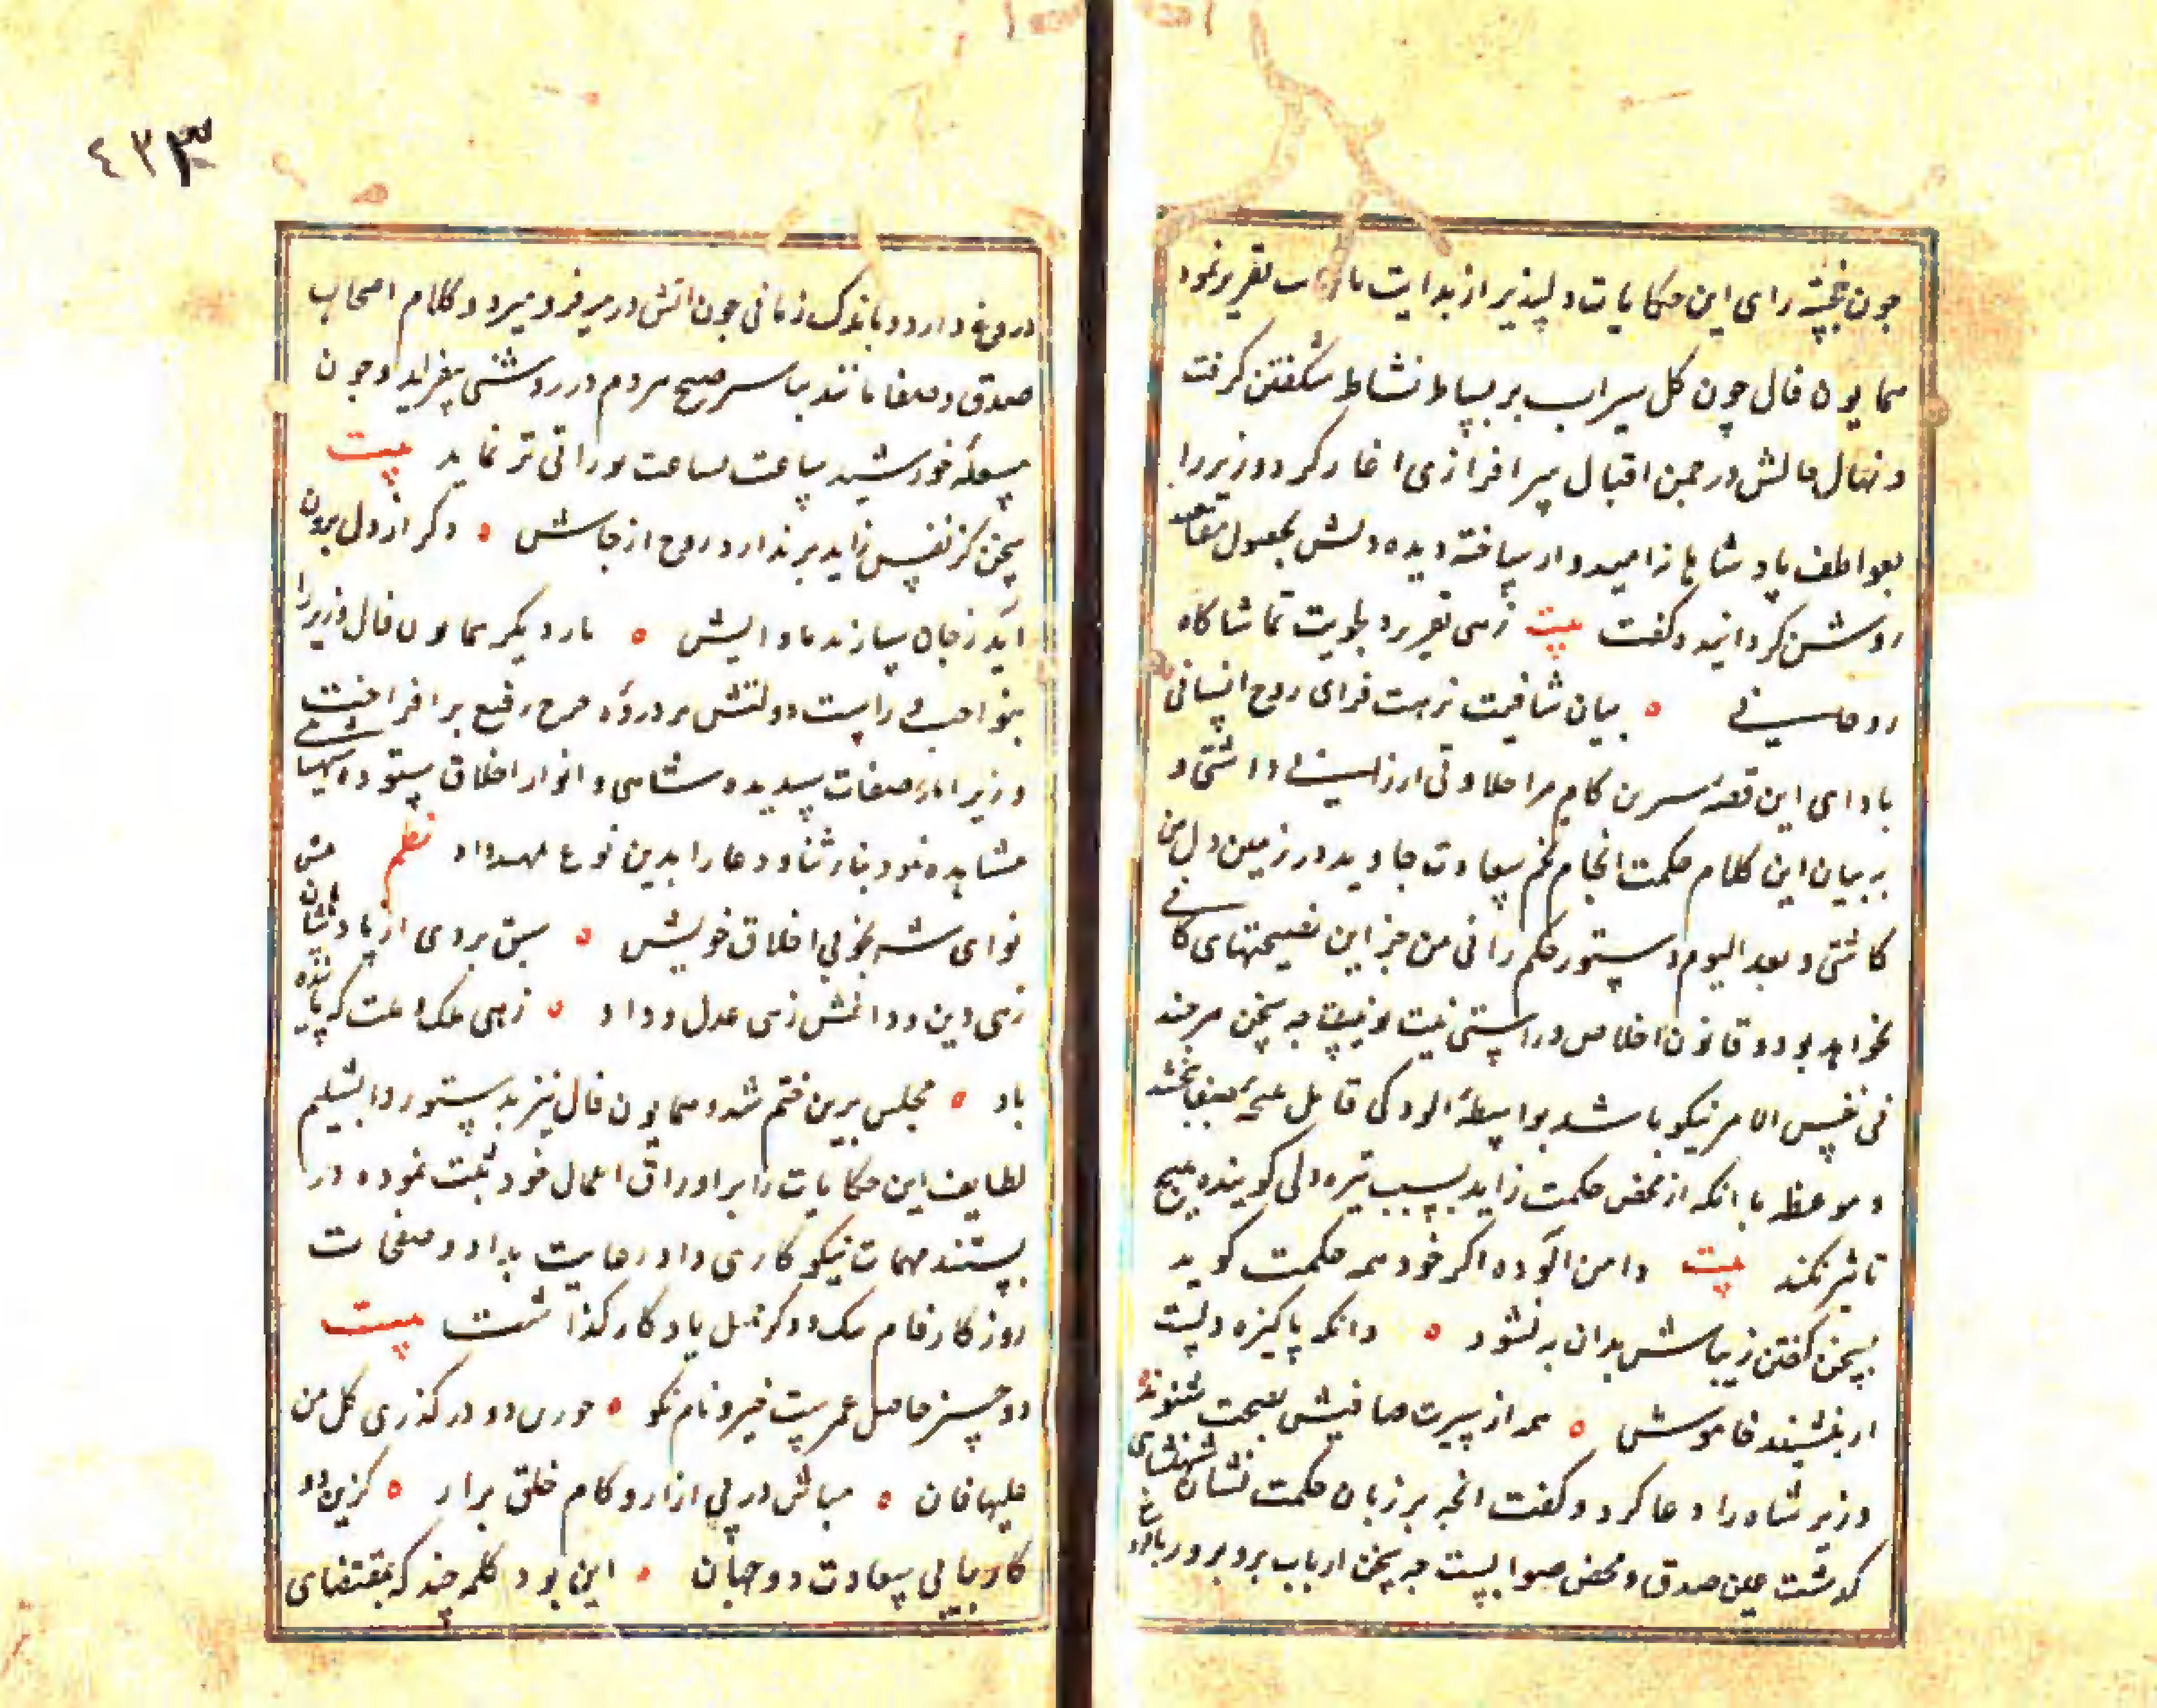 چون خجسته رای این حکایات دلپذیر از بدایت تا نهایت تقریر نمود
همایون فال چون کل سیراب بر بساط نشاط شکفتن کرفت
و نهال حالش در چمن اقبال سرافرازی اغاز کرد و وزیر را
بعواطف پادشاهانه امیدوار ساخته دیده دلش بحصول مقاصد
روشن کردانید و کفت بیت زهی تقریر دلجویت تماشاکاه
روحانی ه بیان شافیت نزهت فزای روح انسانی
بادای این قصهٔ شیرین کام مرا حلاوتی ارزانی داشتی و
ببیان این کلام حکمت انجام تخم سعادت جاوید در زمین دل من
کاشتی و بعد الیوم دستور حکم رانی من جز این نصیحتهای کافی
نخواهد بود و قانون اخلاص در راستی نیت و نیست چه سخن هرچند
فی نفس الامر نیکو باشد بواسطهٔ الودکی قایل نتیجهٔ نبخشد
و موعظه با انکه از محض حکمت زاید بسبب تیره دلی کوینده هیچ
تاثیر نکند بیت دامن الوده اکر خود همه حکمت کوید
بسخن کفتن زیباش بدان به نشود ه وانکه پاکیزه دلست
ار بنشیند خاموش ه همه از سیرت صافیش نصیحت شنوند
وزیر شاه را دعا کرد و کفت انچه بر زبان حکمت نشان شهنشاهی
کذشت عین صدق و محض صوابست چه سخن ارباب
دروغ دارد و باندک زمانی چون اتش در میرد و کلام اصحاب
صدق و صفا مانند تباشیر صبح هردم در روشنی بیفزاید و چون
مشعلهٔ خورشید ساعت بساعت نورانی تر نماید بیت
سخن کز نفس زاید بر ندارد روح از جانش ه وکر از دل برون
آید ز جان سازند ماوایش ه بار دیکر همایون فال وزیر را
بنواخت و رایت دولتش بر ذروهٔ چرخ رفیع برافراخت
وزیر اثار صفات پسندیده شاهی و انوار اخلاق ستوده شهنشاهی
مشاهده نمود بناء ثنا و دعا را بدین نوع تمهید داد نظم
توای شه بخوبی اخلاق خویش ه سبق بردی از پادشاهان پیش
زهی دین و دانش زهی عدل و داد ه زهی ملک و دولت که پاینده
باد ه مجلس برین ختم شد و همایون فال نیز بدستور دابشلیم
لطایف این حکایات را بر اوراق اعمال خود ثبت نموده در
مهمات نیکوکاری داد رعایت بداد و صفحات
روزکار نام نیک و ذکر جمیل یادکار کذاشت بیت
دو چیز حاصل عمرست خیر و نام نکو ه چو زین دو در کذری کل من
علیها فان ه مباش در پی ازار و کام خلق برار ه کزین دو
کار بیابی سعادت دو جهان ه این بود کلمهٔ چند که بمقتضای
٤٣٣